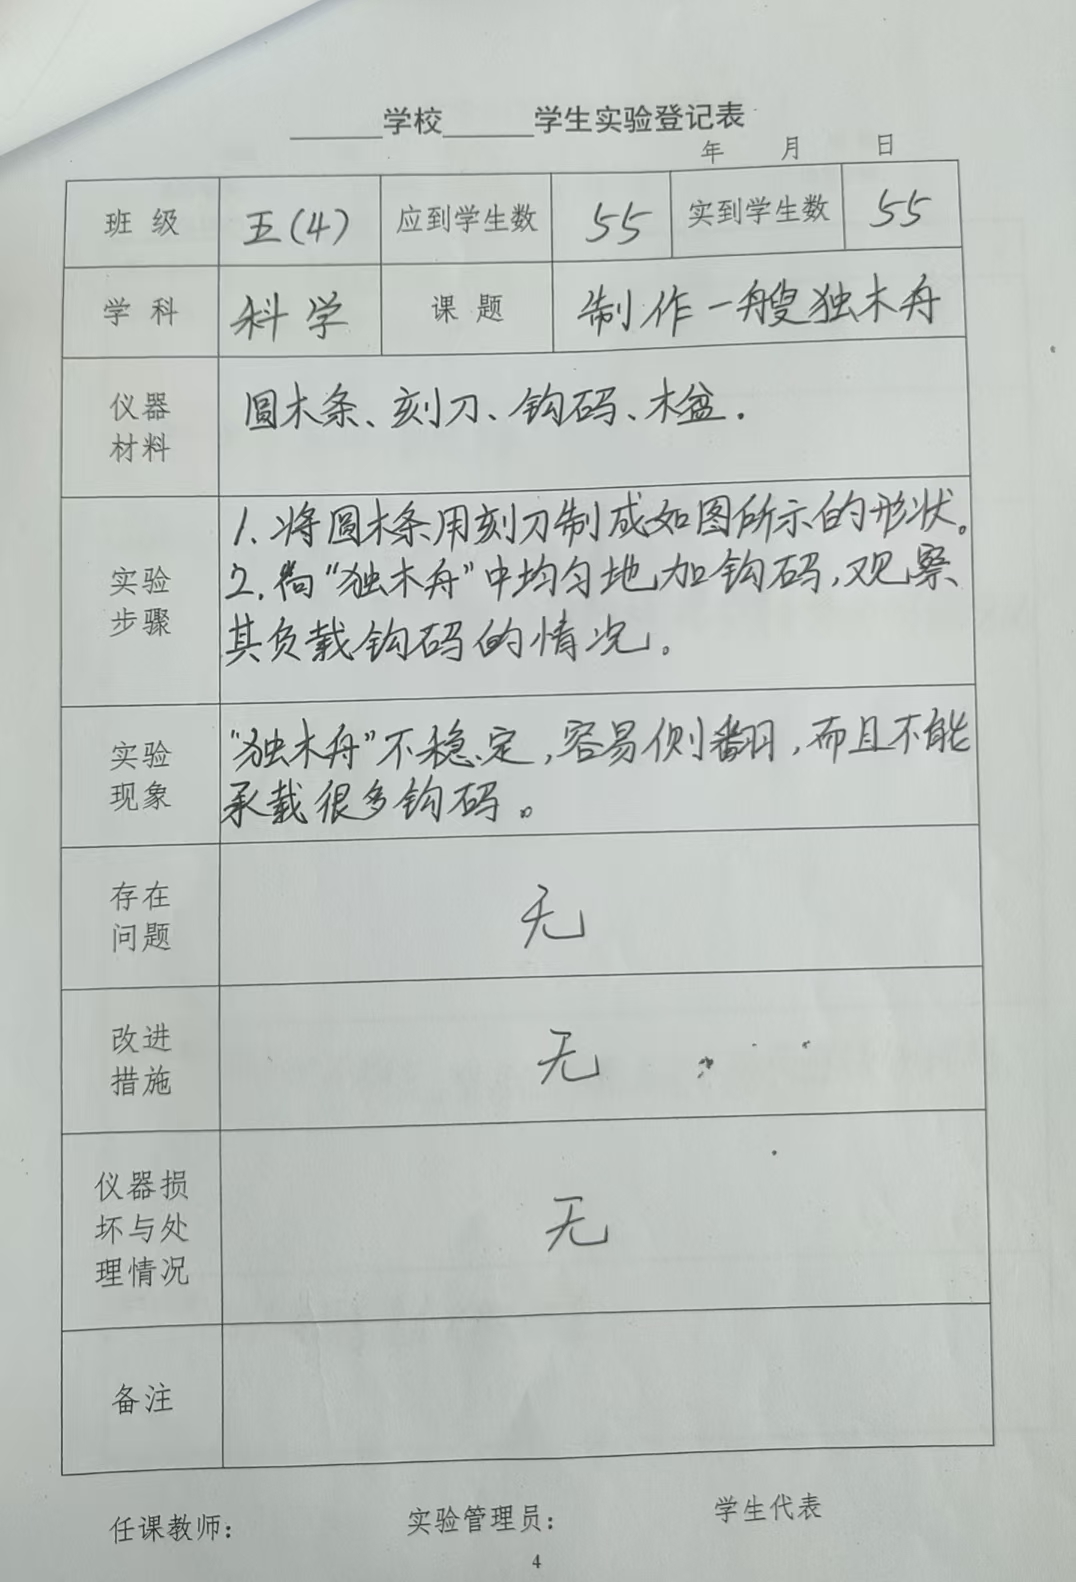 ______学校______学生实验登记表
年 月 日
班 级 五(4) 应到学生数 55 实到学生数 55
学 科 科学 课 题 制作一艘独木舟
仪器
材料
圆木条、刻刀、钩码、木盆.
实验
步骤
1.将圆木条用刻刀制成如图所示的形状。
2.向“独木舟”中均匀地加钩码,观察
其负载钩码的情况。
实验
现象
“独木舟”不稳定,容易侧翻,而且不能
承载很多钩码。
存在
问题
无
改进
措施
无
仪器损
坏与处
理情况
无
备注
任课教师: 实验管理员: 学生代表
4